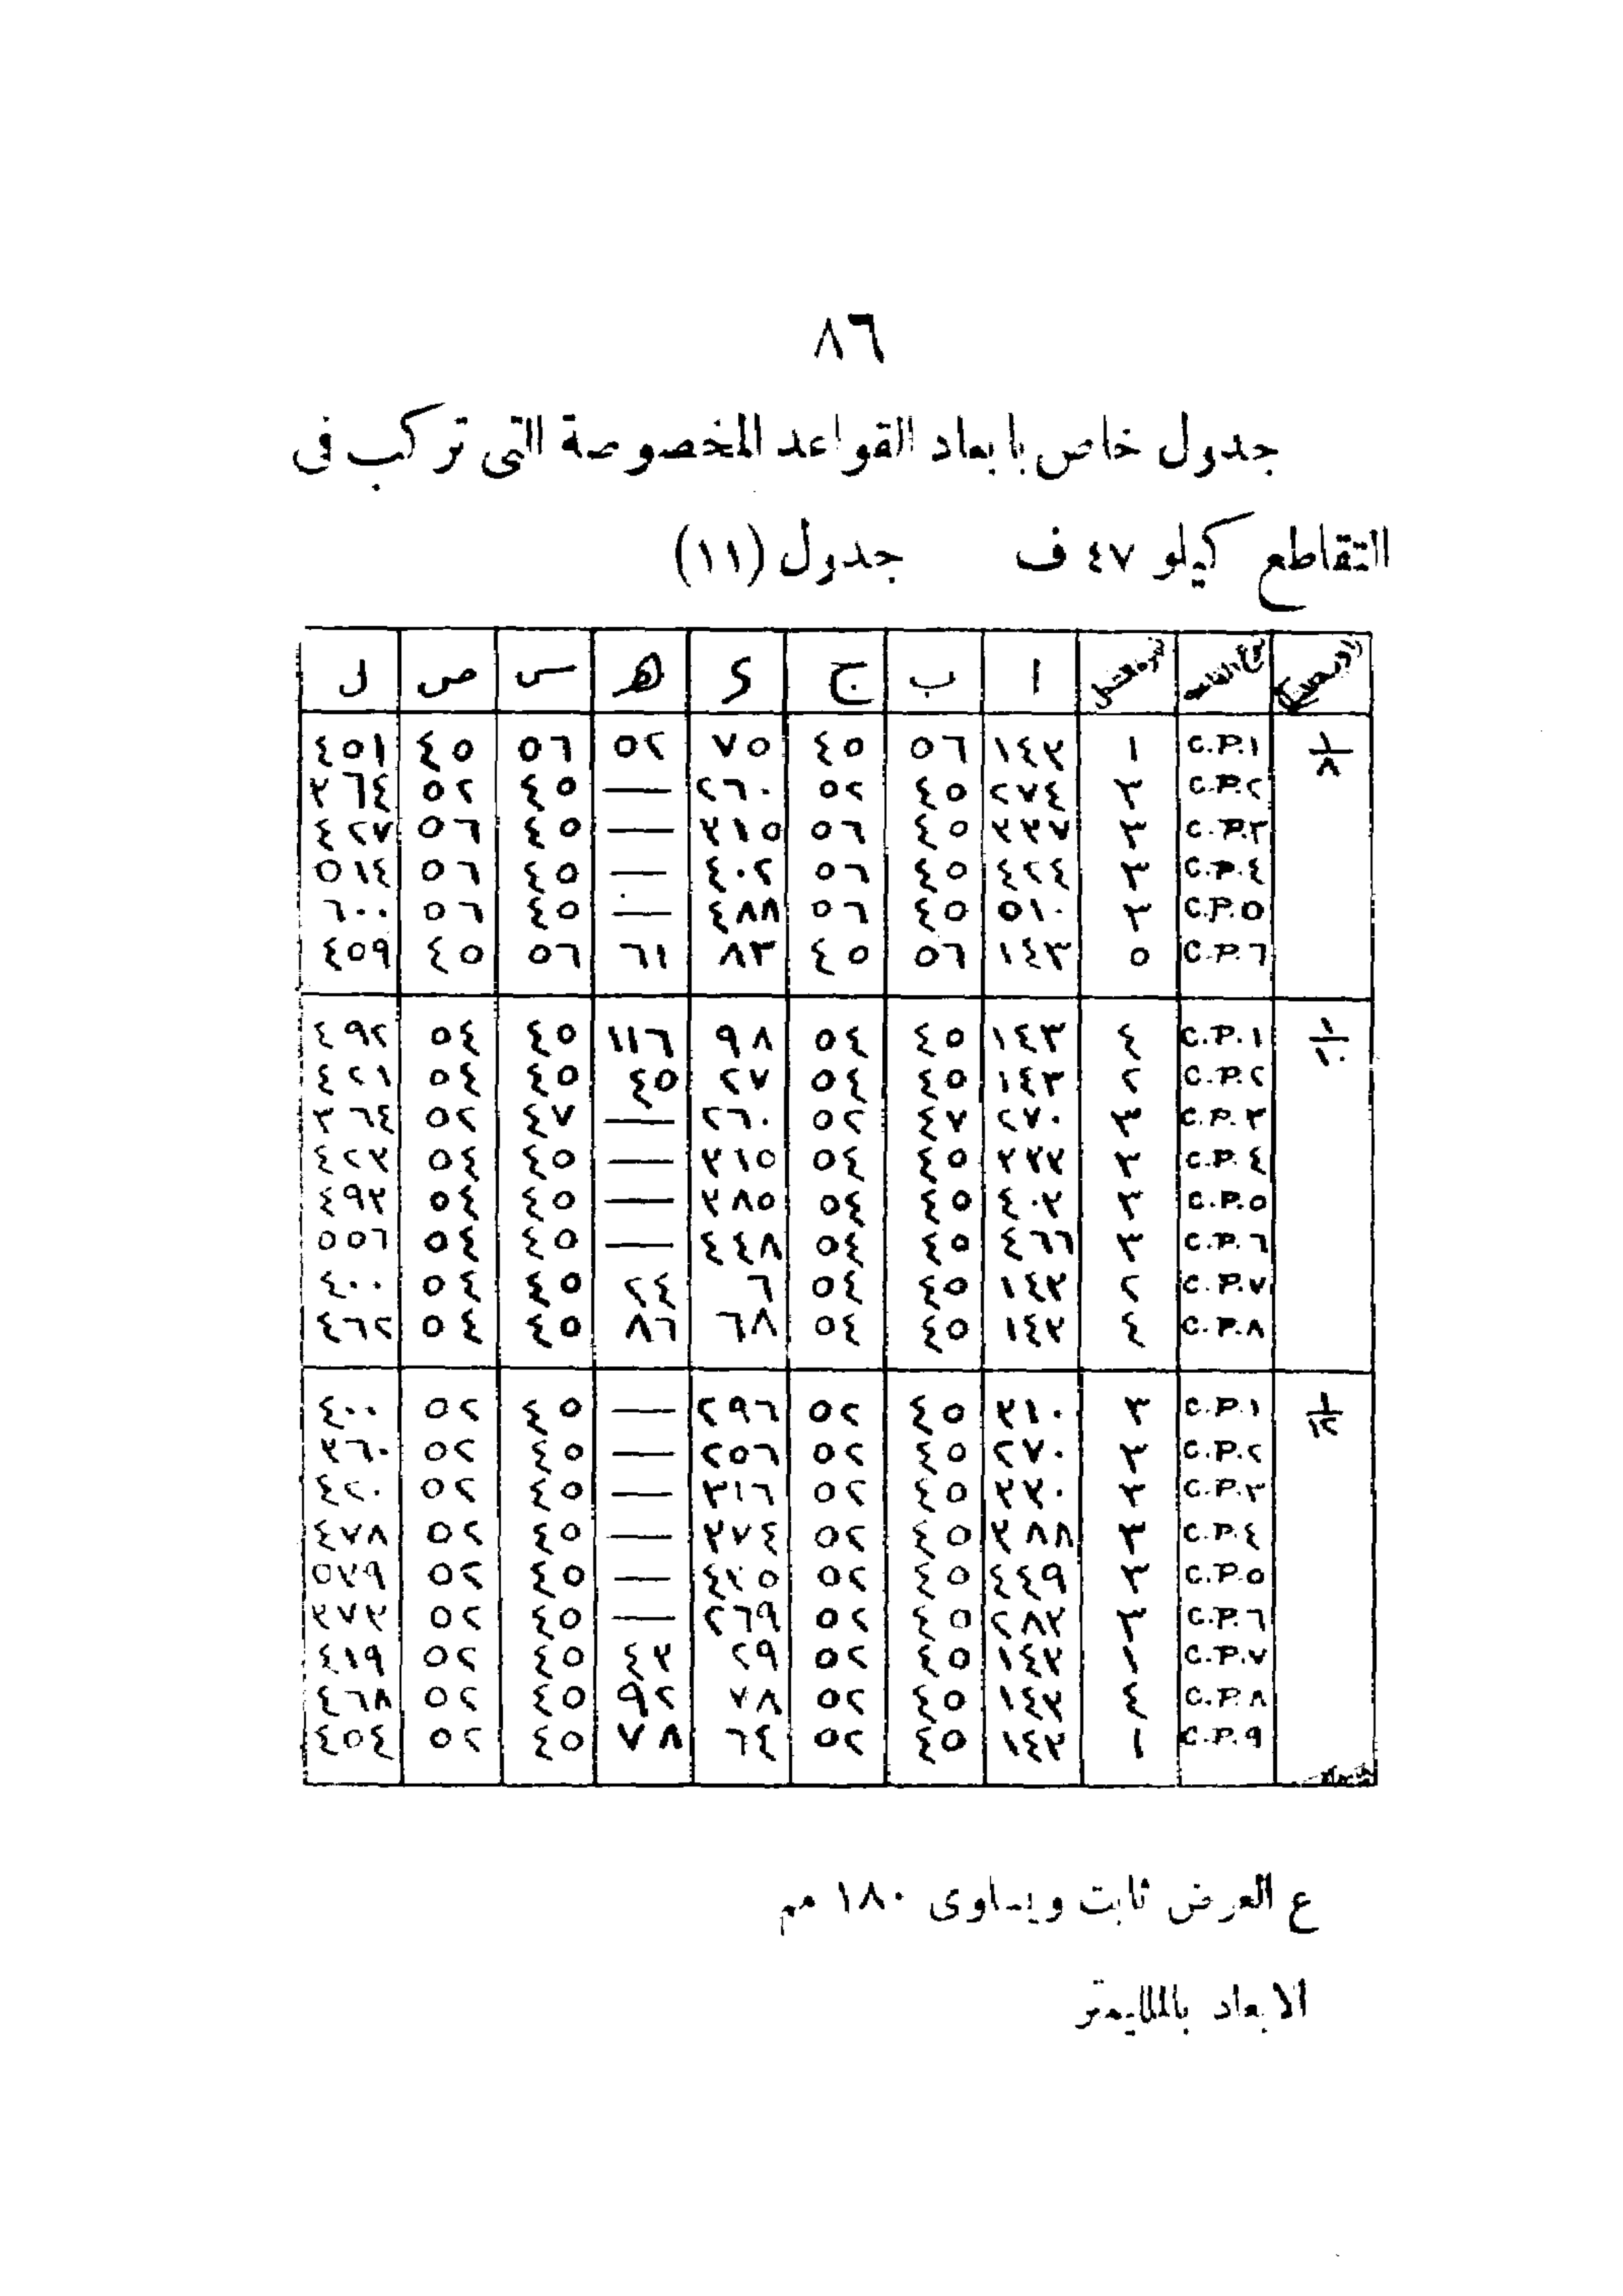 ٨٦
جدول خاص بابعاد القواعد المخصوصة التى تركب فى
التقاطع كيلو ٤٧ ف جدول (١١)
نوع القاعدة ا ب ج د ه س ص ل
١/٨ C.P.١ ١ ١٤٣ ٥٦ ٤٥ ٧٥ ٥٢ ٥٦ ٤٥ ٤٥١
C.P.٢ ٣ ٢٧٤ ٤٥ ٥٢ ٢٦٠ — ٤٥ ٥٢ ٣٦٤
C.P.٣ ٣ ٣٣٧ ٤٥ ٥٦ ٣١٥ — ٤٥ ٥٦ ٤٢٧
C.P.٤ ٣ ٤٢٤ ٤٥ ٥٦ ٤٠٢ — ٤٥ ٥٦ ٥١٤
C.P.٥ ٣ ٥١٠ ٤٥ ٥٦ ٤٨٨ — ٤٥ ٥٦ ٦٠٠
C.P.٦ ٥ ١٤٣ ٥٦ ٤٥ ٨٣ ٦١ ٥٦ ٤٥ ٤٥٩
١/١٠ C.P.١ ٤ ١٤٣ ٤٥ ٥٤ ٩٨ ١١٦ ٤٥ ٥٤ ٤٩٢
C.P.٢ ٢ ١٤٣ ٤٥ ٥٤ ٢٧ ٤٥ ٤٥ ٥٤ ٤٢١
C.P.٣ ٣ ٢٧٠ ٤٧ ٥٢ ٢٦٠ — ٤٧ ٥٢ ٣٦٤
C.P.٤ ٣ ٣٣٣ ٤٥ ٥٤ ٣١٥ — ٤٥ ٥٤ ٤٢٣
C.P.٥ ٣ ٤٠٣ ٤٥ ٥٤ ٣٨٥ — ٤٥ ٥٤ ٤٩٣
C.P.٦ ٣ ٤٦٦ ٤٥ ٥٤ ٤٤٨ — ٤٥ ٥٤ ٥٥٦
C.P.٧ ٢ ١٤٣ ٤٥ ٥٤ ٦ ٢٤ ٤٥ ٥٤ ٤٠٠
C.P.٨ ٤ ١٤٣ ٤٥ ٥٤ ٦٨ ٨٦ ٤٥ ٥٤ ٤٦٢
١/١٢ C.P.١ ٣ ٣١٠ ٤٥ ٥٢ ٢٩٦ — ٤٥ ٥٢ ٤٠٠
C.P.٢ ٣ ٢٧٠ ٤٥ ٥٢ ٢٥٦ — ٤٥ ٥٢ ٣٦٠
C.P.٣ ٣ ٣٣٠ ٤٥ ٥٢ ٣١٦ — ٤٥ ٥٢ ٤٢٠
C.P.٤ ٣ ٣٨٨ ٤٥ ٥٢ ٣٧٤ — ٤٥ ٥٢ ٤٧٨
C.P.٥ ٣ ٤٤٩ ٤٥ ٥٢ ٤٣٥ — ٤٥ ٥٢ ٥٣٩
C.P.٦ ٣ ٢٨٣ ٤٥ ٥٢ ٢٦٩ — ٤٥ ٥٢ ٣٧٣
C.P.٧ ١ ١٤٣ ٤٥ ٥٢ ٢٩ ٤٣ ٤٥ ٥٢ ٤١٩
C.P.٨ ٤ ١٤٣ ٤٥ ٥٢ ٧٨ ٩٢ ٤٥ ٥٢ ٤٦٨
C.P.٩ ١ ١٤٣ ٤٥ ٥٢ ٦٤ ٧٨ ٤٥ ٥٢ ٤٥٤
ع العرض ثابت ويساوى ١٨٠ مم
الابعاد بالملليمتر